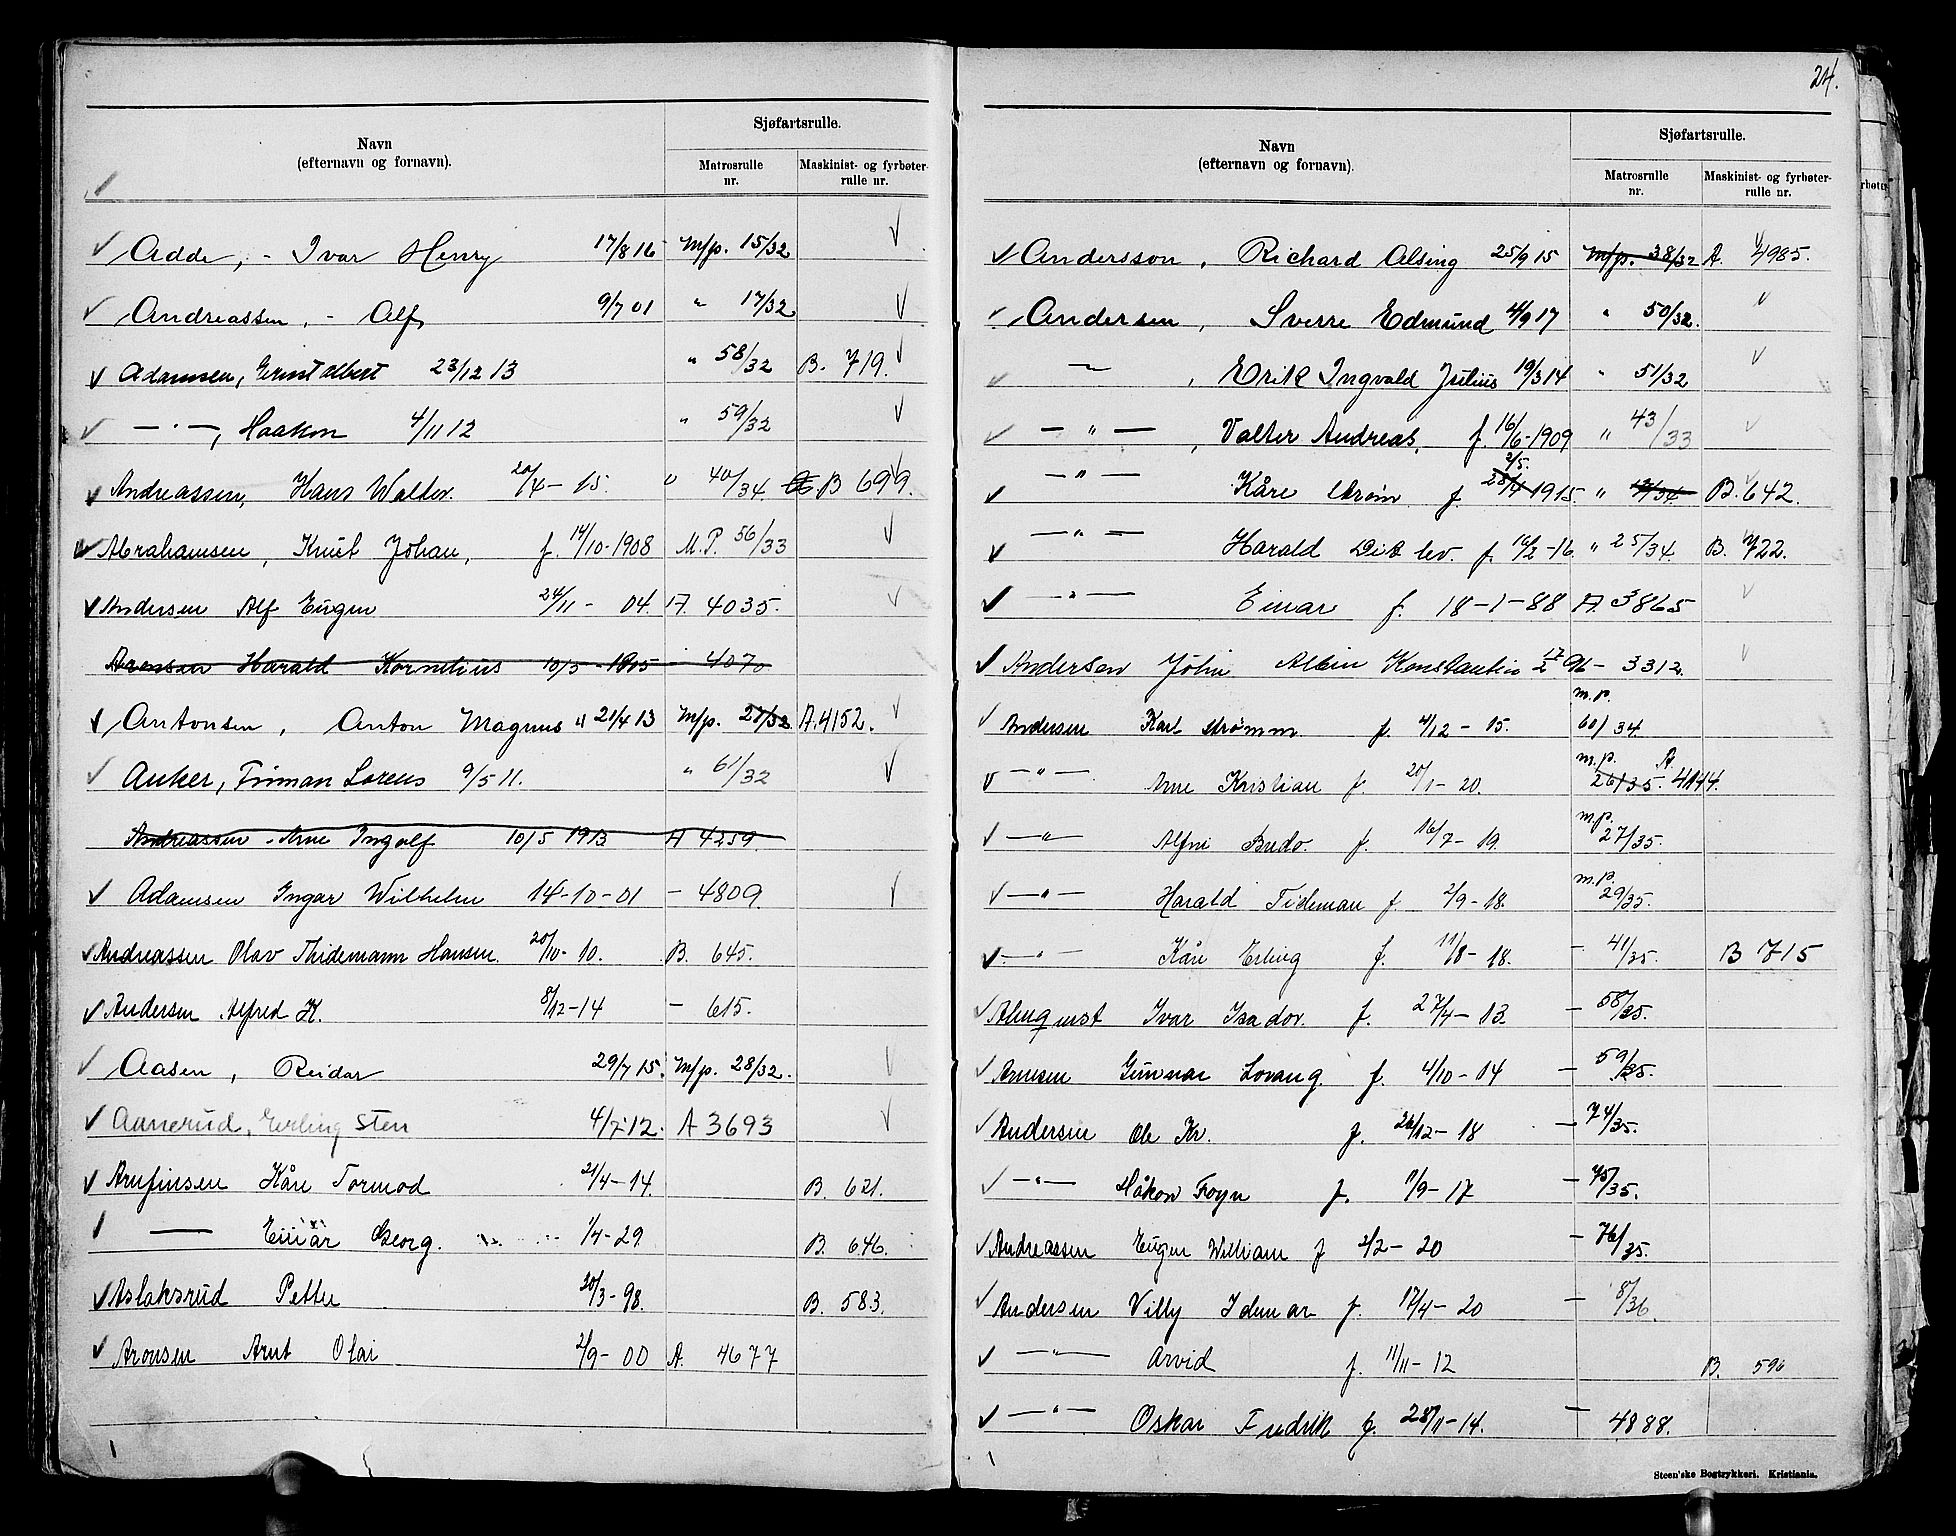 Navn
(efternavn og fornavn).
Sjøfartsrulle.
Matrosrulle nr.
Maskinist- og fyrbøter-rulle nr.
Adde, - Ivar Henry 17/8 16 M/p. 15/32
Andreassen, - Alf 9/7 01 " 17/32
Adamsen, Ernst Albert 23/12 13 " 58/32 B. 719.
— " —, Haakon 4/11 12 " 59/32
Andreassen, Hans Walter. 20/4 - 15. " 40/34 B 699.
Abrahamsen, Knut Johan, f. 14/10-1908 M.P. 56/33
Andersen Alf Eugen 24/11 - 04. A. 4035.
Aronsen Harald Kornelius 10/5 - 1915 - 4070
Antonsen, Anton Magnus 21/4 13 M/p. 27/32 A. 4152.
Anker, Finman Lorens 9/5 11. " 61/32
Andreassen Arne Ingolf 10/5 1913 A 4259.
Adamsen Ingar Wilhelm 14-10-01 - 4809
Andreassen Olav Thidemann Hansen. 20/10-10. B. 645.
Andersen Alfred K. 8/12-14 - 615.
Aasen, Reidar 29/7 15. M/p. 28/32.
Aanerud, Erling Sten 4/7 12. A 3693
Arnfinsen Kåre Tormod 21/4-14. B. 621.
— Einar Georg. 1/4-29. B. 646.
Aslaksrud Petter 20/3-98. B. 583.
Aronsen Arnt Olai 2/9-00 A. 4677
24.
Navn
(efternavn og fornavn).
Sjøfartsrulle.
Matrosrulle nr.
Maskinist- og fyrbøter-rulle nr.
Andersson, Richard Alsing 25/9 15 M/p. 38/32 A. 4985.
Andersen, Sverre Edmund 4/9 17 " 50/32.
— " —, Erik Ingvald Julius 19/3 14 " 51/32
— " —, Valter Andreas, f. 16/6-1909 " 43/33
2/5.
— " — Kåre Strøm f. 28/4 1915. " B. 642.
— " — Harald Ditlev. f. 14/2-16. " 25/34. B. 722.
— " — Einar f. 18-1-88 A. 3865
Andersen John Albin Konstantin 17/2 96 - 3312.
m.p.
Andersen Karl Strømm f. 4/12-15. 60/34
m.p. A.
— " — Arne Kristian f. 20/1-20. 26/35. 4144.
m.p.
— " — Alfni Budo. f. 16/7-19. 27/35.
m.p.
— " — Harald Tideman f. 2/9-18. 29/35.
— " — Kåre Erling f. 11/8-18. - 41/35. B 715
Almquist Ivar Isador. f. 27/4-13. - 58/35.
Arnesen Gunnar Lovang. f. 4/10-04 - 59/35.
Andersen Ole Kr. f. 26/12-18 - 74/35.
— " — Håkon Foyn f. 9/9-17 - 75/35.
Andreassen Eugen William f 2/2-20 - 76/35.
Andersen Villy Idemar f. 17/4-20 - 8/36.
— " — Arvid f. 11/11-12 B. 596
— " — Oskar Fredrik f. 28/11-14. - 4888.
Steen'ske Bogtrykkeri. Kristiania.